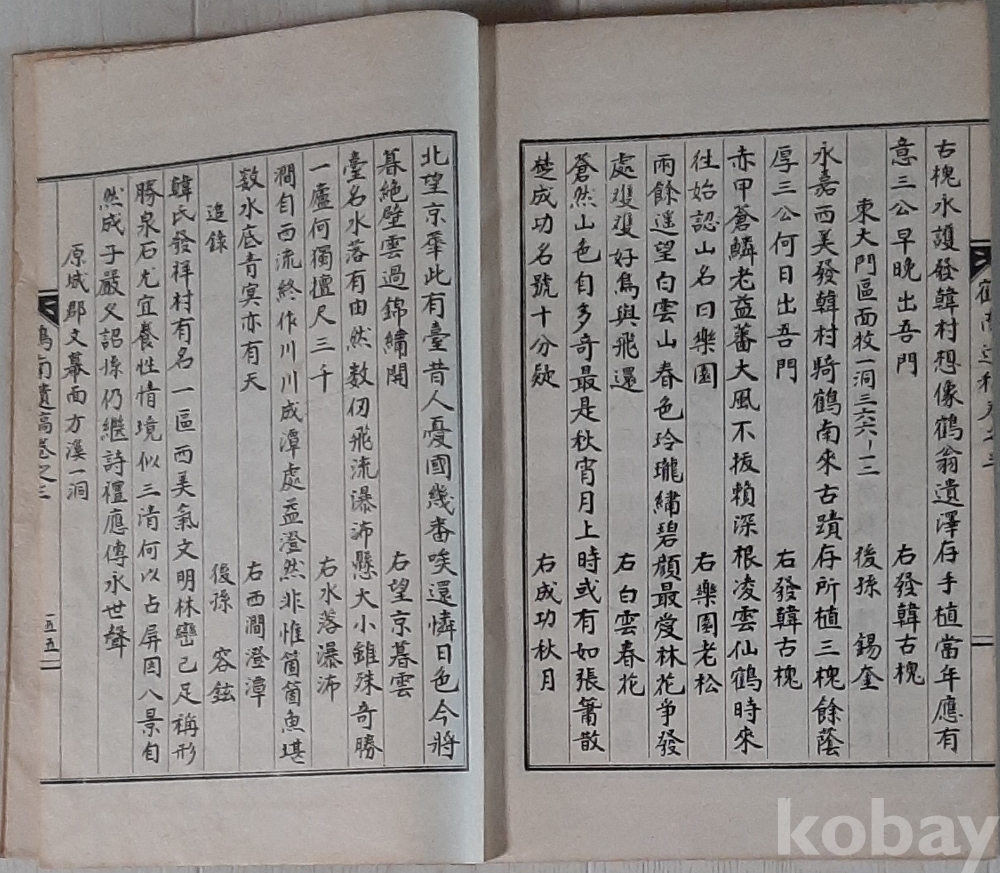 古槐水護發韓村想像鶴翁遺澤存手植當年應有
意三公早晚出吾門
右發韓古槐
東大門區面牧一洞三六六ー二
後孫 錫奎
永嘉西美發韓村騎鶴南來古蹟存所植三槐餘蔭
厚三公何日出吾門
右發韓古槐
赤甲蒼鱗老益蕃大風不拔賴深根凌雲仙鶴時來
往始認山名曰樂園
右樂園老松
雨餘遙望白雲山春色玲瓏繡碧顔最愛林花爭發
處雙雙好鳥與飛還
右白雲春花
蒼然山色自多奇最是秋宵月上時或有如張簫散
楚成功名號十分疑
右成功秋月
北望京華此有臺昔人憂國幾番唉還憐日色今將
暮絶壁雲過錦繡開
右望京暮雲
臺名水落有由然數仞飛流瀑沛懸大小錐殊奇勝
一廬何獨擅尺三千
右水落瀑沛
澗自西流終作川川成潭處益澄然非惟箇箇魚堪
数水底青冥亦有天
右西澗澄潭
追錄
後孫 容鉉
韓氏發祥村有名一區西美氣文明林巒已足稱形
勝泉石尤宜養性情境似三清何以占屏因八景自
然成子嚴父詔倐仍繼詩禮應傳永世聲
原城郡文幕面方溪一洞
鶴南遺稿卷之三
一五五
kobay